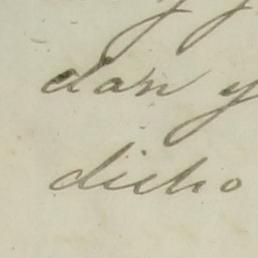 dan y
dicho